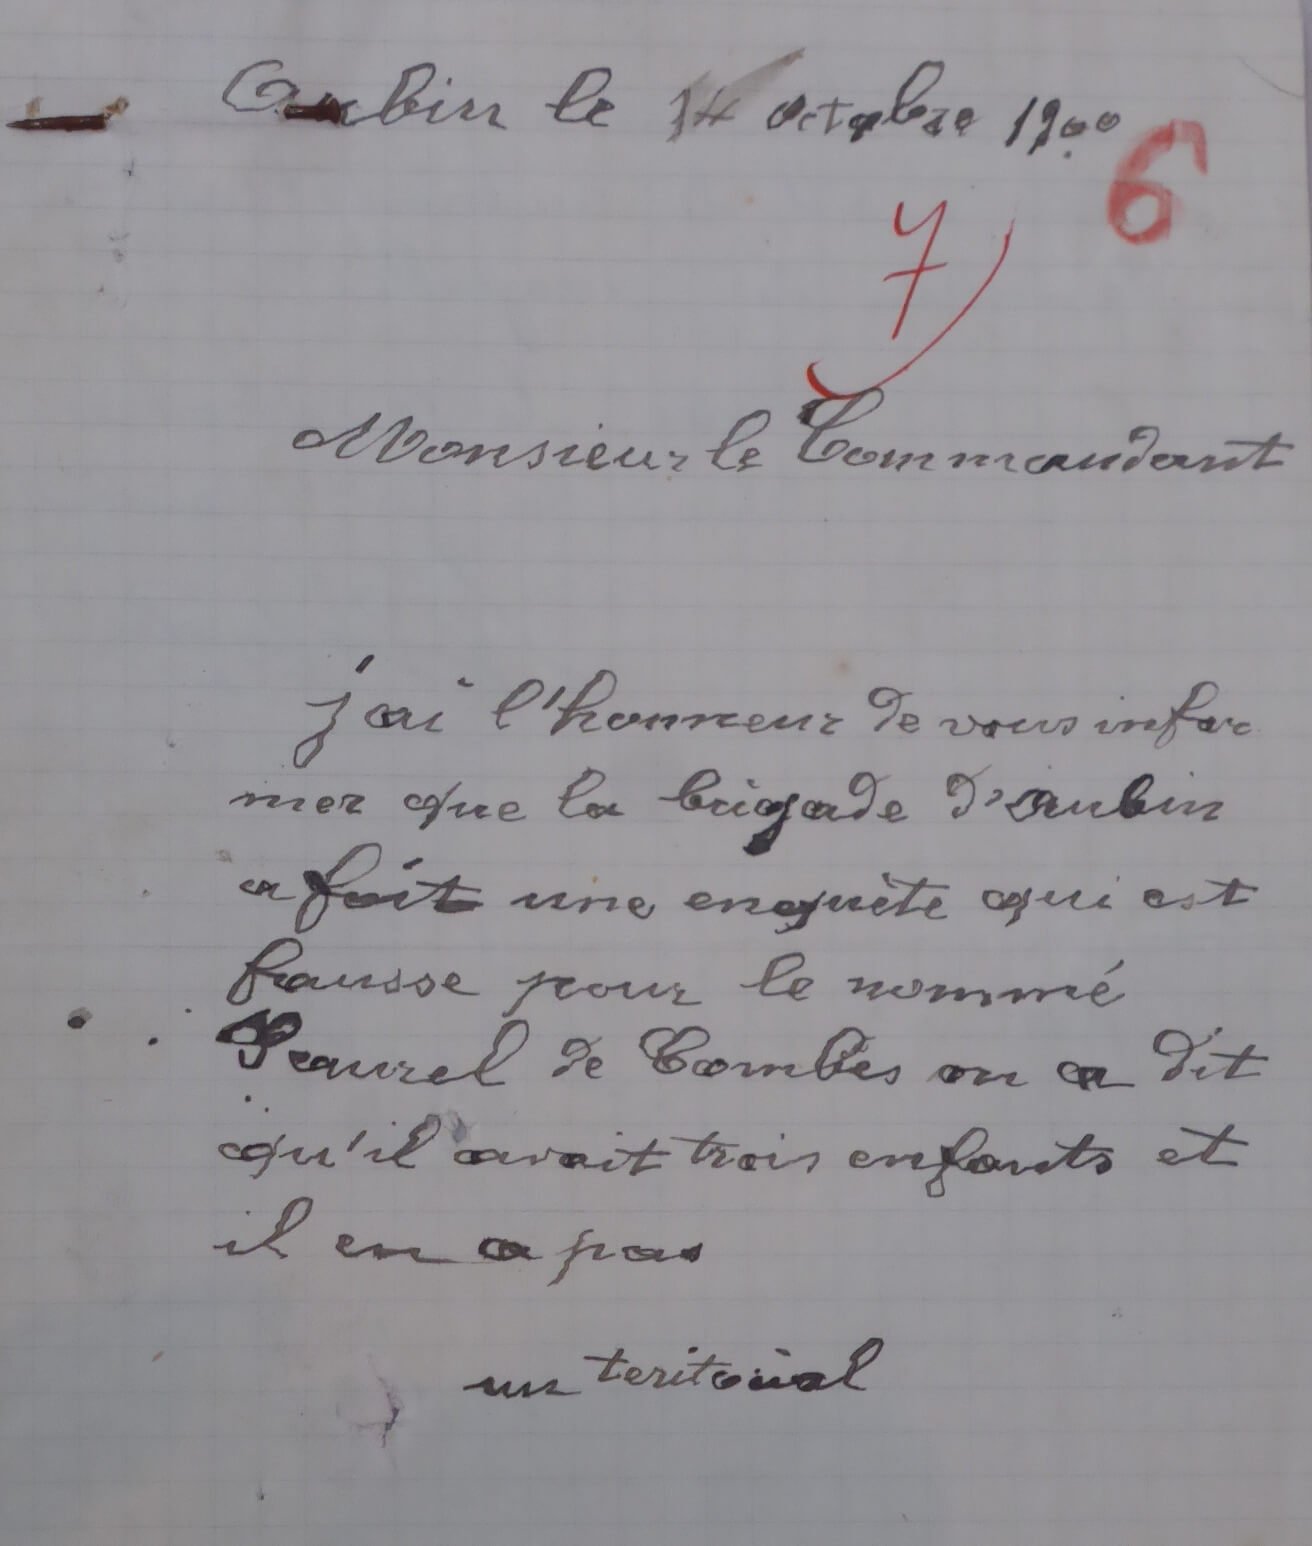 Aubin le 14 octobre 1900
6
7
Monsieur le Commandant
j'ai l'honneur de vous infor
mer que la brigade d'aubin
a fait une enquète qui est
fausse pour le nommé
de Combes on a dit
qu'il avait trois enfants et
il en a pas
un teritoiial